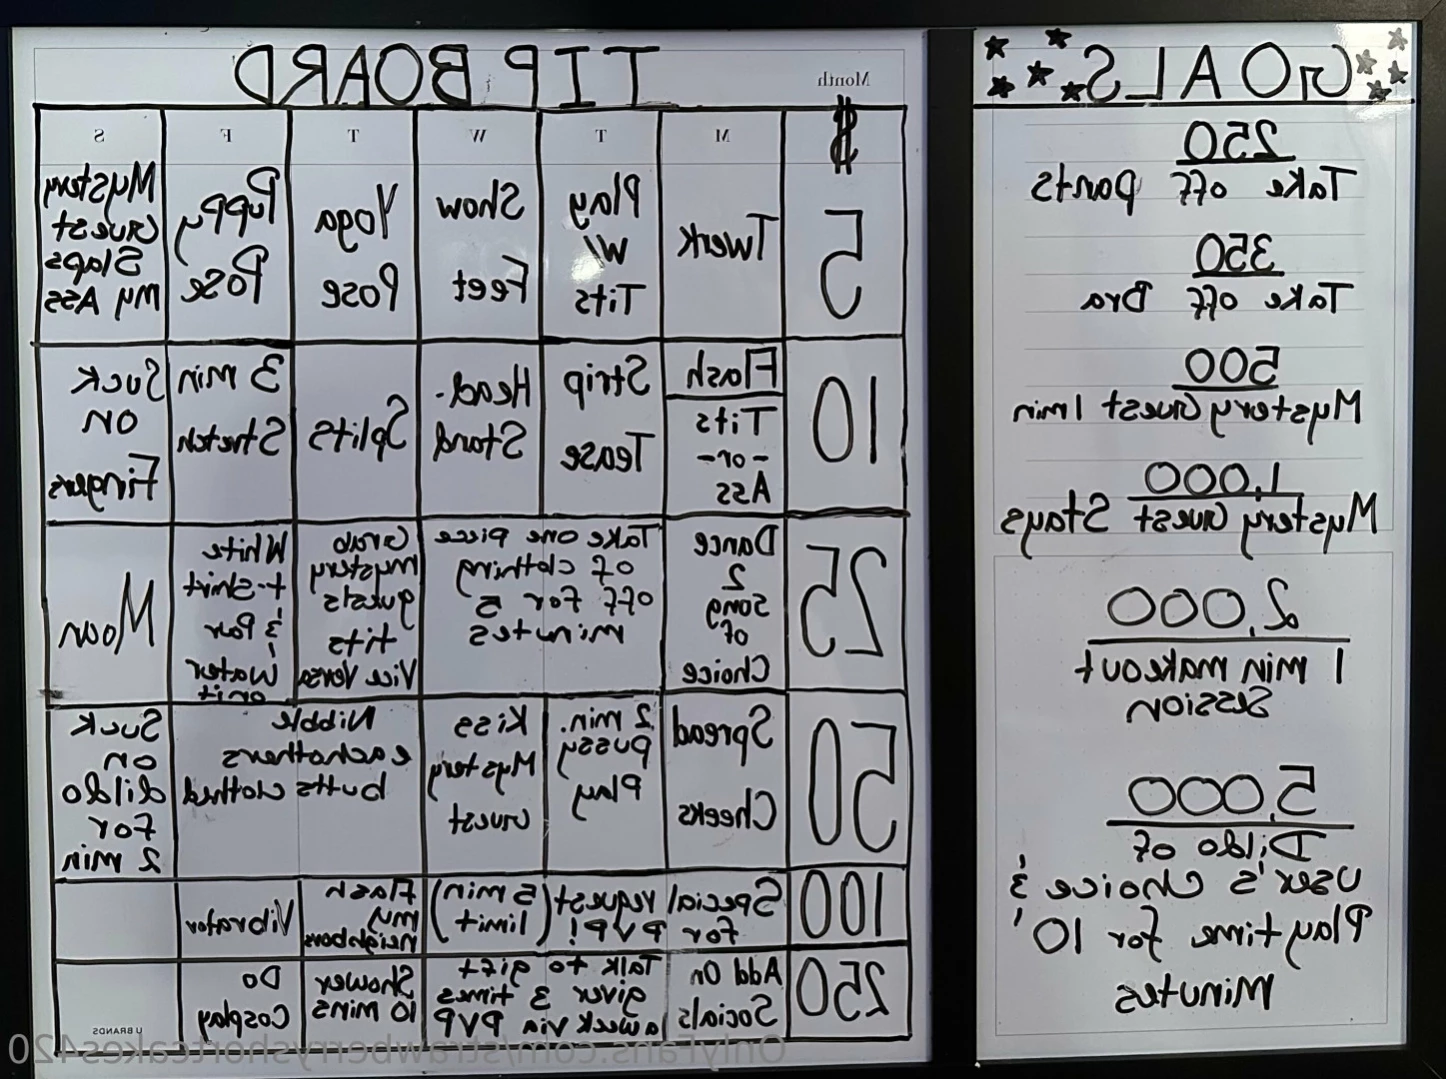 TIP BOARD
Month
$
M
T
W
T
F
S
5
Twerk
Play
w/
Tits
Show
Feet
Yoga
Pose
Puppy
Pose
Mystery
Guest
Slaps
my Ass
10
Flash
Tits
-or-
Ass
Strip
Tease
Head-
Stand
Splits
3 min
Stretch
Suck
on
Fingers
25
Dance
2
song
of
Choice
Take one piece
of clothing
off for 5
minutes
Grab
mystery
guests
tits
Vice Versa
White
t-shirt
& Pour
water
on it
Moan
50
Spread
Cheeks
2 min.
pussy
Play
Kiss
Mystery
Guest
Nibble
eachothers
butts clothed
Suck
on
dildo
For
2 min
100
Special request (5 min)
for PVP! (limit)
Flash
my
neighbors
Vibrator
250
Add On
Socials
Talk to gift
giver 3 times
a week via PVP
Shower
10 mins
Do
Cosplay
U BRANDS
GOALS
250
Take off pants
350
Take off Bra
500
Mystery Guest 1 min
1,000
Mystery Guest Stays
2,000
1 min makeout
Session
5,000
Dildo of
User's Choice &
Playtime for 10
Minutes
OnlyFans.com/strawberryshortcakes420